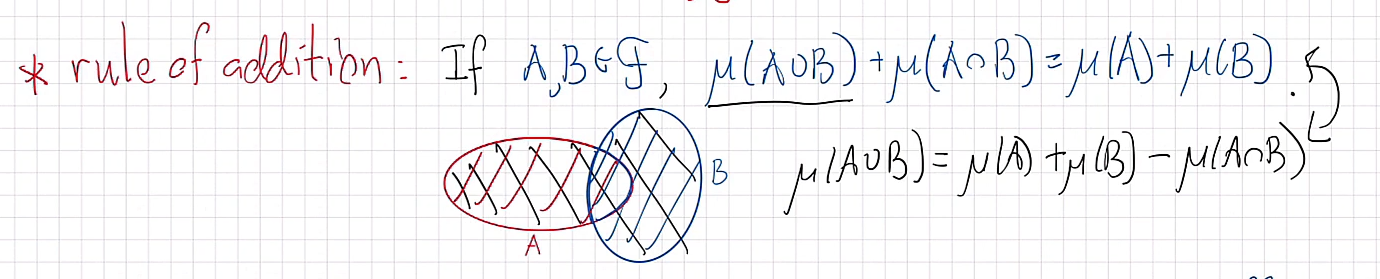 * rule of addition: If A,B∈ℱ, μ(A∪B)+μ(A∩B)=μ(A)+μ(B).
μ(A∪B)=μ(A)+μ(B)-μ(A∩B)
B
A